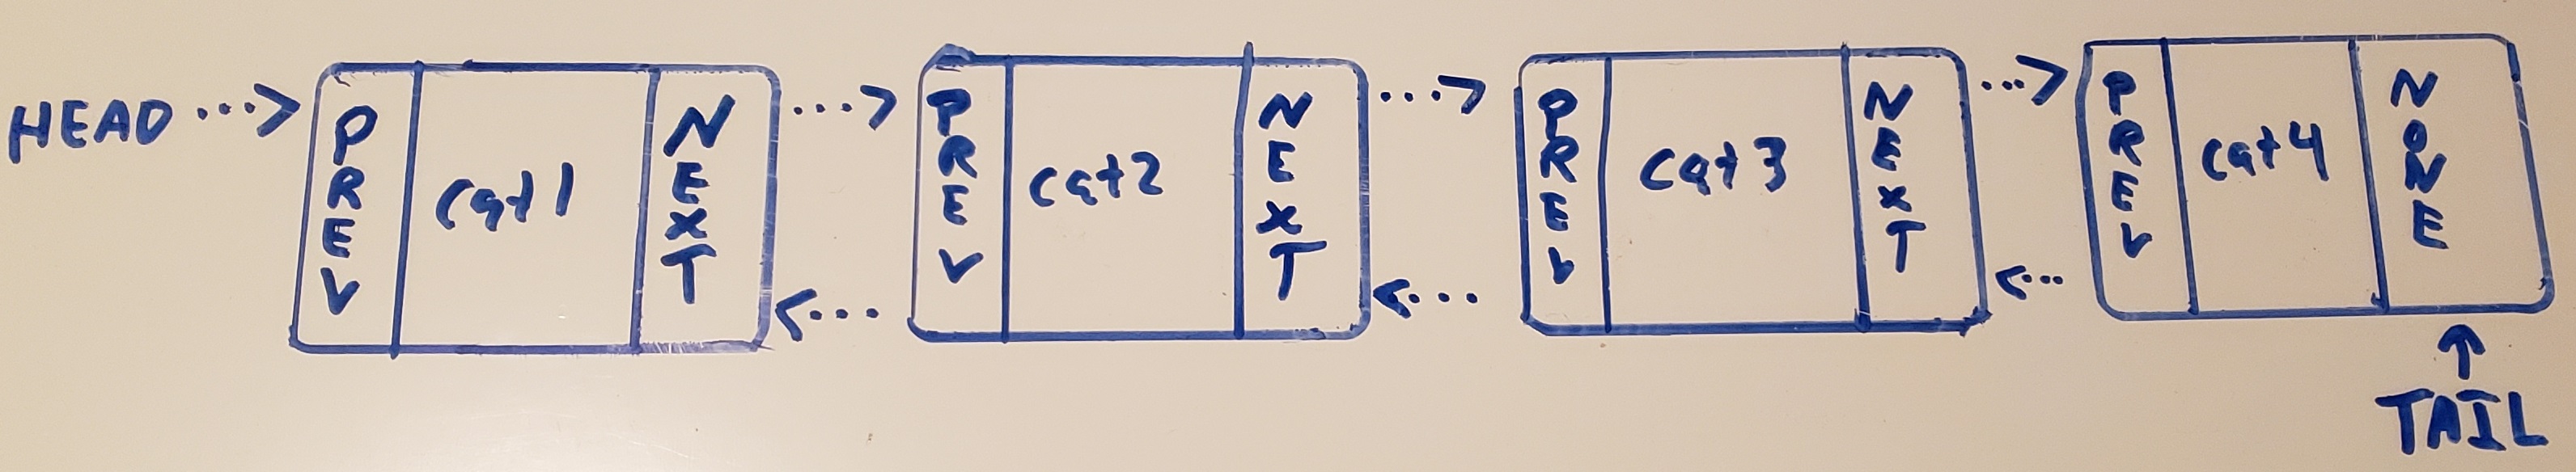 HEAD ...>
PREV
cat1
NEXT
...>
<...
PREV
cat2
NEXT
...>
<...
PREV
cat3
NEXT
...>
<...
PREV
cat4
NONE
↑
TAIL